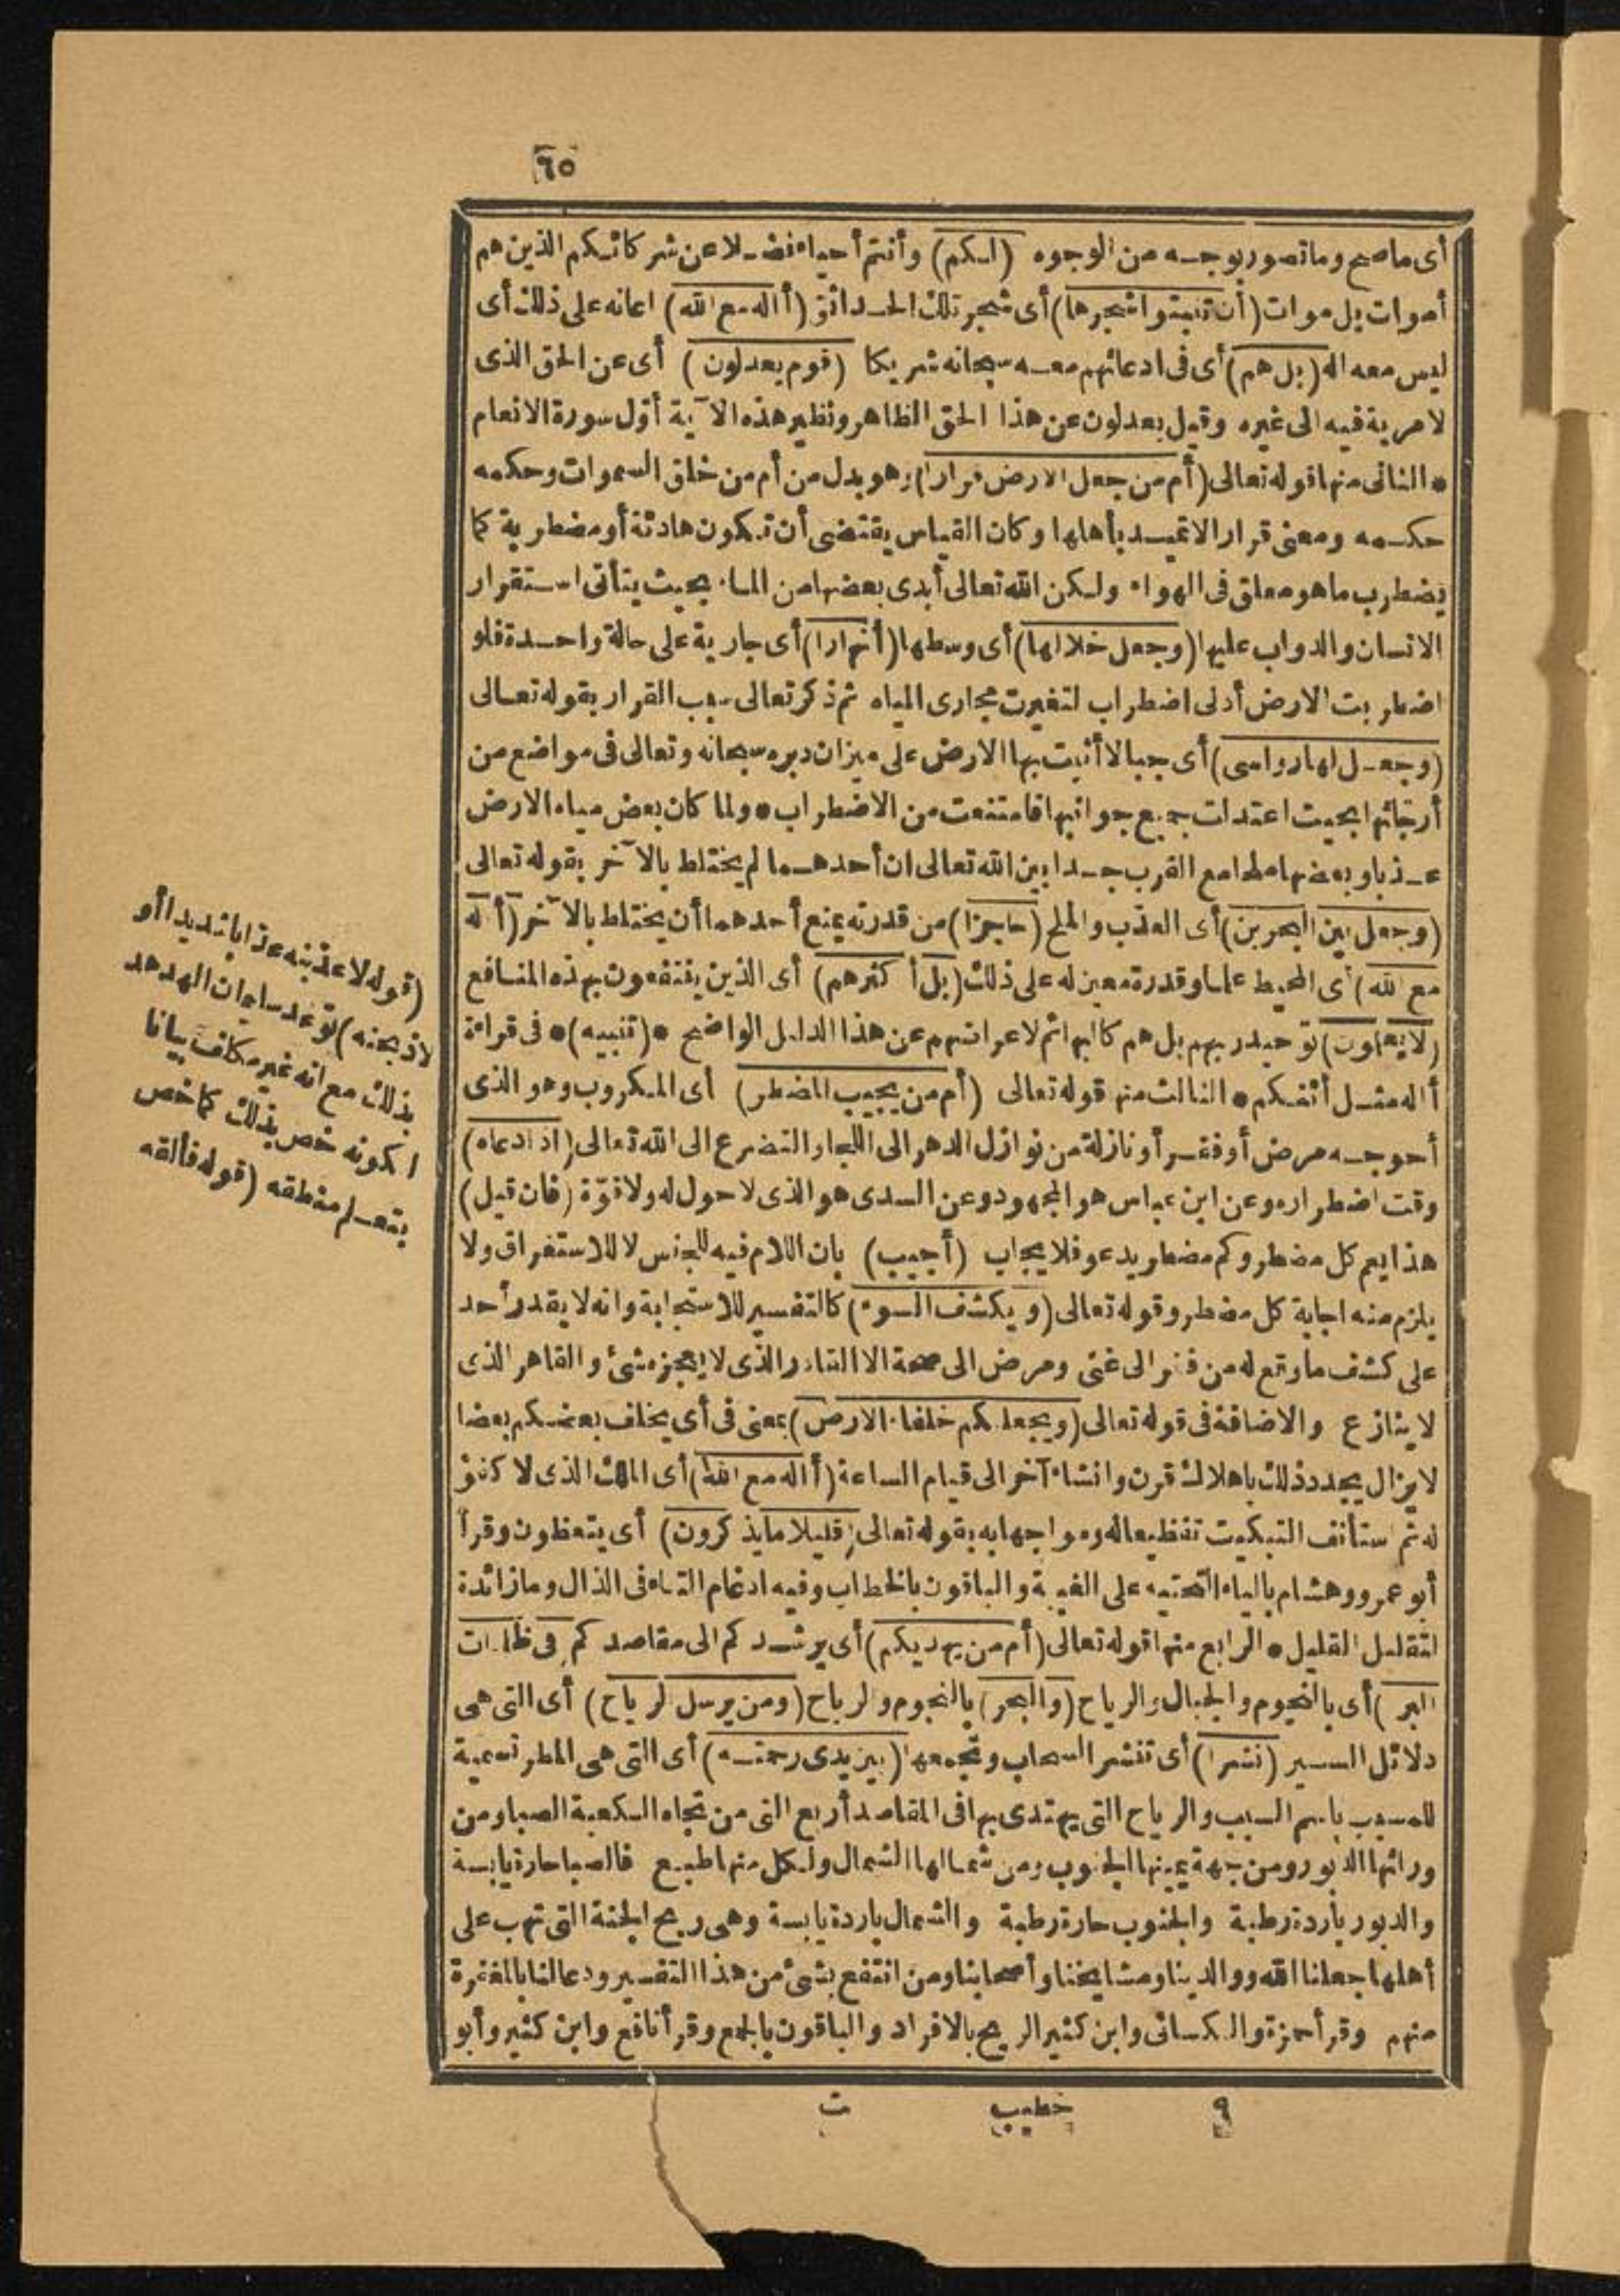 ٦٥
أى ماصح وماتصور بوجه من الوجوه (لكم) وأنتم أحياء فضلا عن شركائكم الذين هم
أموات بل موات (أن تنبتوا شجرها) أى شجر تلك الحدائق (أاله مع الله) اعانه على ذلك أى
ليس معه اله (بل هم) أى فى ادعائهم معه سبحانه شريكا (قوم يعدلون) أى عن الحق الذى
لا مرية فيه الى غيره وقيل يعدلون عن هذا الحق الظاهر ونظير هذه الآية أوّل سورة الانعام
* الثانى منها قوله تعالى (أم من جعل الارض قرارا) وهو بدل من أم من خلق السموات وحكمه
حكمه ومعنى قرارا لاتميد بأهلها وكان القياس يقتضى أن تكون هادئة أو مضطربة كما
يضطرب ما هو معلق فى الهواء ولكن الله تعالى أبدى بعضها من الماء بحيث يتأتى استقرار
الانسان والدواب عليها (وجعل خلالها) أى وسطها (أنهارا) أى جارية على حالة واحدة فلو
اضطربت الارض أدنى اضطراب لتغيرت مجارى المياه ثم ذكر تعالى سبب القرار بقوله تعالى
(وجعل لها رواسى) أى جبالا أثبت بها الارض على ميزان دبره سبحانه وتعالى فى مواضع من
أرجائها بحيث اعتدلت جميع جوانبها فامتنعت من الاضطراب * ولما كان بعض مياه الارض
عذبا وبعضها ملحا مع القرب جدا بين الله تعالى ان أحدهما لم يختلط بالآخر بقوله تعالى
(وجعل بين البحرين) أى العذب والملح (حاجزا) من قدرته يمنع أحدهما أن يختلط بالآخر (أاله
مع الله) أى المحيط علما وقدرة معين له على ذلك (بل أكثرهم) أى الذين ينتفعون بهذه المنافع
(لا يعلمون) توحيد ربهم بل هم كالبهائم لاعراضهم عن هذا الدليل الواضح * (تنبيه) * فى قراءة
أاله مثل أئفكم * الثالث منها قوله تعالى (أم من يجيب المضطر) أى المكروب وهو الذى
أحوجه مرض أو فقر أو نازلة من نوازل الدهر الى اللجا والتضرع الى الله تعالى (اذا دعاه)
وقت اضطراره وعن ابن عباس هو المجهود وعن السدى هو الذى لا حول له ولا قوّة (فان قيل)
هذا يعم كل مضطر وكم مضطر يدعو فلا يجاب (أجيب) بان اللام فيه للجنس لا للاستغراق ولا
يلزم منه اجابة كل مضطر وقوله تعالى (ويكشف السوء) كالتفسير للاستجابة وانه لا يقدر أحد
على كشف ما وقع له من فقر الى غنى ومرض الى صحة الا القادر الذى لا يعجزه شئ والقاهر الذى
لا ينازع والاضافة فى قوله تعالى (ويجعلكم خلفاء الارض) بمعنى فى أى يخلف بعضكم بعضا
لا يزال يجدد ذلك باهلاك قرن وانشاء آخر الى قيام الساعة (أاله مع الله) أى الملك الذى لا كفؤ
له ثم استأنف التبكيت تفظيعا له ومواجها به بقوله تعالى (قليلا ما يذكرون) أى يتعظون وقرأ
أبو عمرو وهشام بالياء التحتيه على الغيبة والباقون بالخطاب وفيه ادغام التاء فى الذال وما زائدة
لتقليل القليل * الرابع منها قوله تعالى (أم من يهديكم) أى يرشدكم الى مقاصدكم (فى ظلمات
البر) أى بالنجوم والجبال والرياح (والبحر) بالنجوم والرياح (ومن يرسل الرياح) أى التى هى
دلائل السير (نشرا) أى تنشر السحاب وتجمعها (بين يدى رحمته) أى التى هى المطر تسمية
للمسبب باسم السبب والرياح التى يهتدى بها فى المقاصد أربع التى من تجاه الكعبة الصبا ومن
ورائها الدبور ومن جهة يمينها الجنوب ومن شمالها الشمال ولكل منها طبع فالصبا حارة يابسة
والدبور باردة رطبة والجنوب حارة رطبة والشمال باردة يابسة وهى ريح الجنة التى تهب على
أهلها جعلنا الله ووالدينا ومشايخنا وأصحابنا ومن انتفع بشئ من هذا التفسير ودعا لنا بالمغفرة
منهم وقرأ حمزة والكسائى وابن كثير الريح بالافراد والباقون بالجمع وقرأ نافع وابن كثير وأبو
(قوله لاعذبنه عذابا شديدا أو
لاذبحنه) توعد سليمان الهدهد
بذلك مع انه غير مكلف بيانا
لكونه خص بذلك كما خص
بتعلم منطقه (قوله فألقه
٩ خطيب ت